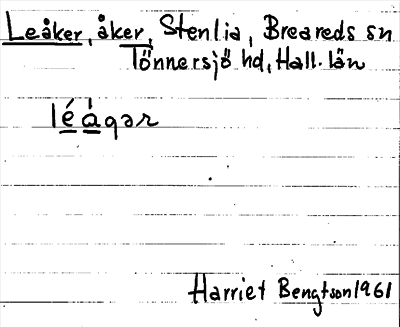 Leåker, åker, Stenlia, Breareds sn
Tönnersjö hd, Hall. län
léågər
Harriet Bengtson 1961